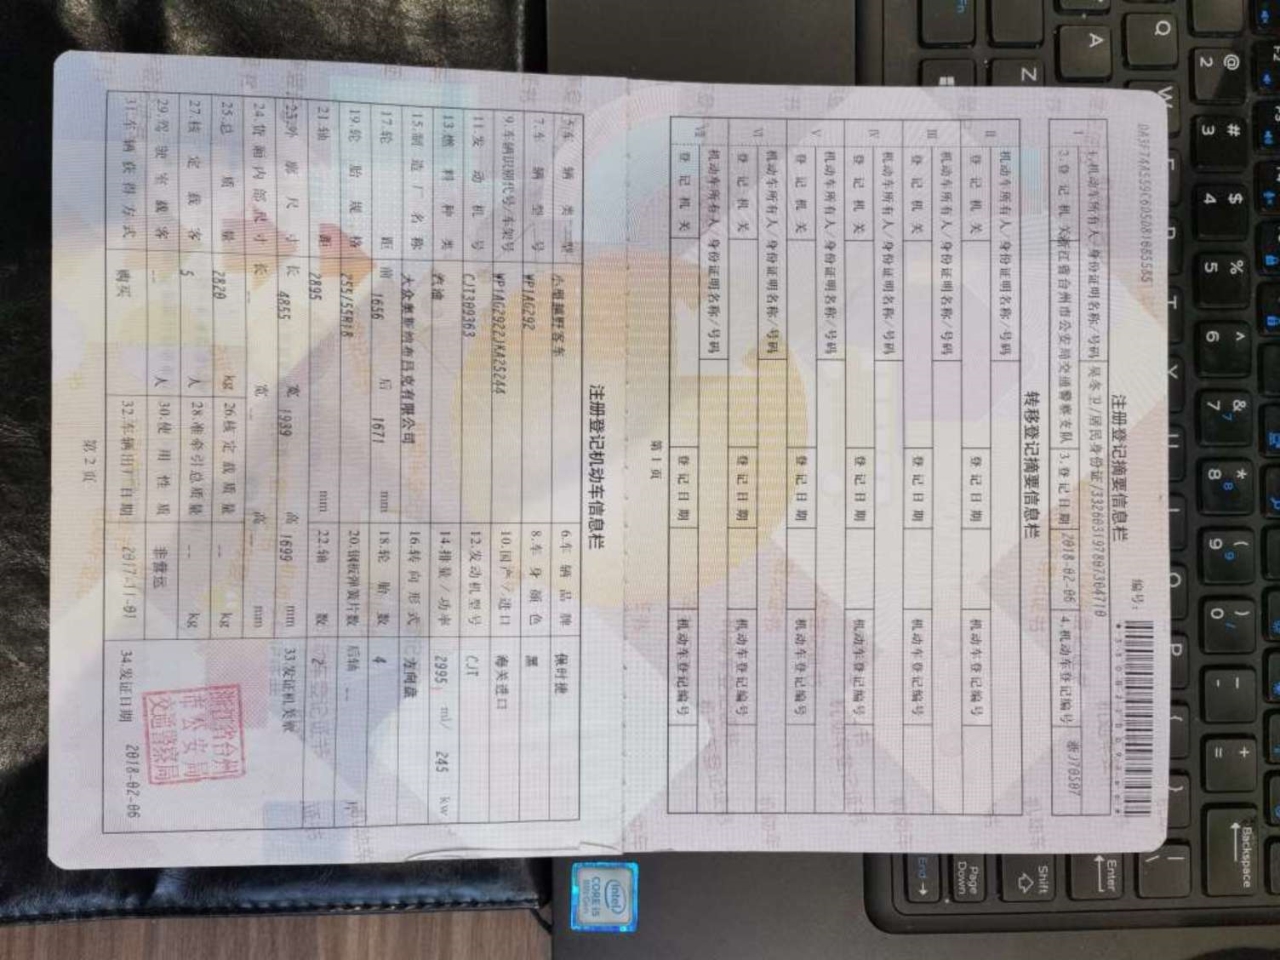 注册登记摘要信息栏
编号:
1.机动车所有人/身份证明名称/号码 吴冬卫/居民身份证/332603197807304710
2.登记机关 浙江省台州市公安局交通警察支队 3.登记日期 2018-02-06 4.机动车登记编号 浙J70507
转移登记摘要信息栏
II 机动车所有人/身份证明名称/号码
登记机关 登记日期 机动车登记编号
III 机动车所有人/身份证明名称/号码
登记机关 登记日期 机动车登记编号
IV 机动车所有人/身份证明名称/号码
登记机关 登记日期 机动车登记编号
V 机动车所有人/身份证明名称/号码
登记机关 登记日期 机动车登记编号
VI 机动车所有人/身份证明名称/号码
登记机关 登记日期 机动车登记编号
VII 机动车所有人/身份证明名称/号码
登记机关 登记日期 机动车登记编号
第1页
注册登记机动车信息栏
5.车辆类型 小型越野客车 6.车辆品牌 保时捷
7.车辆型号 WP1AG292 8.车身颜色 黑
9.车辆识别代号/车架号 WP1AG2922JKA25244 10.国产/进口 海关进口
11.发动机号 CJT309363 12.发动机型号 CJT
13.燃料种类 汽油 14.排量/功率 2995 ml/ 245 kw
15.制造厂名称 大众奥斯纳布吕克有限公司 16.转向形式 方向盘
17.轮距 前 1656 后 1671 mm 18.轮胎数 4
19.轮胎规格 255/55R18 20.钢板弹簧片数 后轴 -- 片
21.轴距 2895 mm 22.轴数 2
23.外廓尺寸 长 4855 宽 1939 高 1699 mm 33.发证机关章
24.货厢内部尺寸 长 -- 宽 -- 高 -- mm
25.总质量 2820 kg 26.核定载质量 -- kg
27.核定载客 5 人 28.准牵引总质量 -- kg
29.驾驶室载客 -- 人 30.使用性质 非营运
31.车辆获得方式 购买 32.车辆出厂日期 2017-11-01 34.发证日期 2018-02-06
浙江省台州
市公安局
交通警察局
第2页
intel
CORE i5